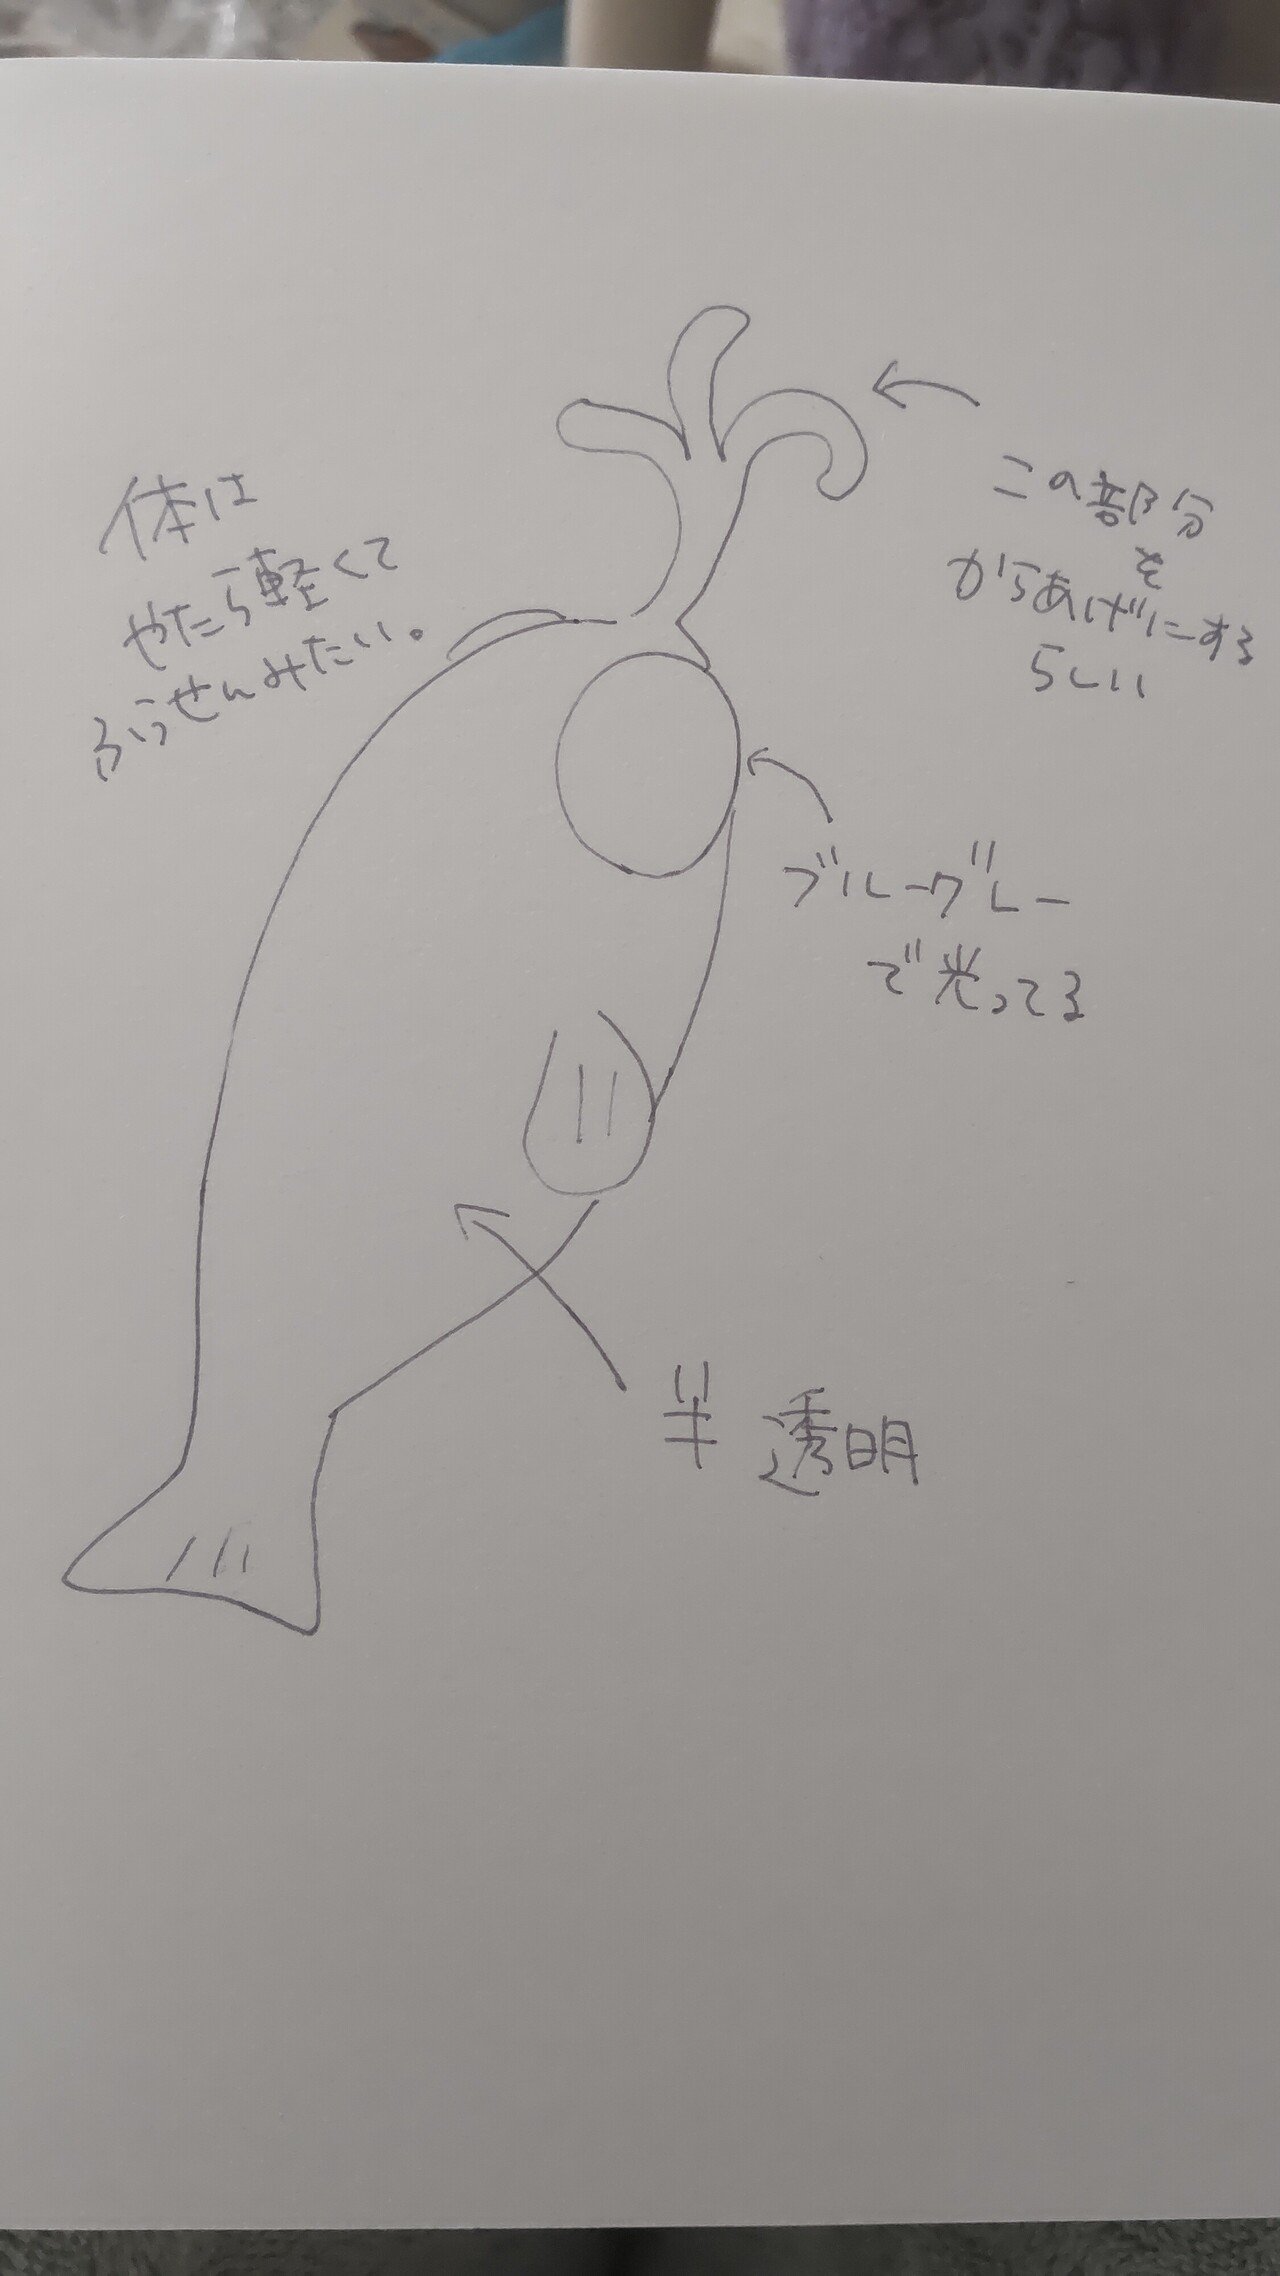 体は
やたら軽くて
ふうせんみたい。
この部分
を
からあげにする
らしい
ブルーグレー
で光ってる
半透明